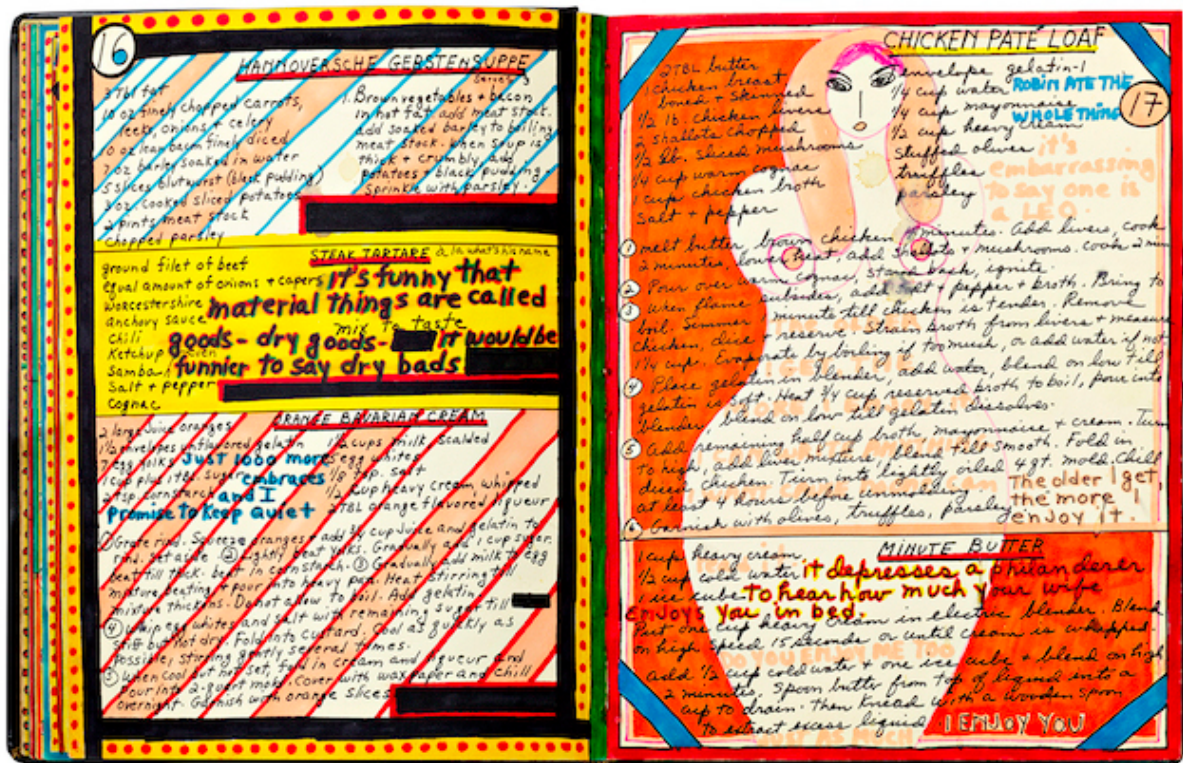 16
HANNOVERSCHE GERSTENSUPPE
Serves 3
3 Tbl fat
10 oz finely chopped carrots,
leeks, onions + celery
oz lean bacon finely diced
oz barley soaked in water
5 slices blutwurst (black pudding)
3 oz cooked sliced potatoes
2 pints meat stock
chopped parsley
1. Brown vegetables + bacon
in hot fat add meat stock.
add soaked barley to boiling
meat stock. When soup is
thick + crumbly, add
potatoes + black pudding.
Sprinkle with parsley.
STEAK TARTARE a la what's his name
ground filet of beef
equal amount of onions + capers
Worcestershire
anchovy sauce
chili
Ketchup
Salt + pepper
cognac
mix to taste
it's funny that
material things are called
goods - dry goods - it would be
funnier to say dry bads
ORANGE BAVARIAN CREAM
2 large juice oranges
1½ envelopes unflavored gelatin
7 egg yolks
1 cup plus 1 tbs. sugar
2 tsp cornstarch
1½ cups milk scalded
5 egg whites
1/8 tsp. salt
1/2 cup heavy cream whipped
2 TBL orange flavored liqueur
Just 1000 more
embraces
and I
promise to keep quiet
① Grate rind. Squeeze oranges + add ¾ cup juice and gelatin to
rind. Set aside. ② Lightly beat yolks. Gradually add 1 cup sugar.
beat till thick. beat in cornstarch. ③ Gradually add milk to egg
mixture beating + pour into heavy pan. Heat stirring till
mixture thickens. Do not allow to boil. Add gelatin.
④ Whip egg whites and salt with remaining sugar till
stiff but not dry. Fold into custard. Cool as quickly as
possible, stirring gently several times.
⑤ When cool but not set, fold in cream and liqueur and
pour into 2-quart mold. Cover with wax paper and chill
overnight. Garnish with orange slices
CHICKEN PATÉ LOAF
17
2 TBL butter
1 chicken breast
boned + skinned
1/2 lb. chicken livers
2 shallots chopped
1/2 lb. sliced mushrooms
1/4 cup warm cognac
1 cup chicken broth
salt + pepper
envelope gelatin-1
1/4 cup water
1/4 cup mayonnaise
1/2 cup heavy cream
stuffed olives
truffles
parsley
ROBIN ATE THE
WHOLE THING
it's
embarrassing
to say one is
a LEO.
① melt butter, brown chicken minutes. Add livers, cook
2 minutes, lower heat, add shallots + mushrooms. cook 2 min
② Pour over warm cognac, stand back, ignite.
③ When flame subsides, add salt + pepper + broth. Bring to
boil. Simmer minute till chicken is tender. Remove
chicken, dice + reserve. Strain broth from livers + measure
1¼ cup. Evaporate by boiling if too much, or add water if not.
④ Place gelatin in blender, add water, blend on low till
gelatin is soft. Heat ¾ cup reserved broth to boil, pour into
blender, blend on low till gelatin dissolves.
⑤ Add remaining half cup broth mayonnaise + cream. Turn
to high, add liver mixture, blend till smooth. Fold in
diced chicken. Turn into lightly oiled 4 qt. mold. Chill
at least 4 hours before unmolding.
⑥ Garnish with olives, truffles, parsley
The older I get,
the more I
enjoy it.
MINUTE BUTTER
1 cup heavy cream
1/2 cup cold water
1 ice cube
it depresses a philanderer
to hear how much your wife
enjoys you in bed.
Put one cup heavy cream in electric blender. Blend
on high speed 15 seconds or until cream is whipped
DO YOU ENJOY ME TOO
add 1/2 cup cold water + one ice cube + blend on high
2 minutes. Spoon butter from top of liquid into a
cup to drain. then knead with a wooden spoon
to extract excess liquid
I ENJOY YOU
JUST AS MUCH